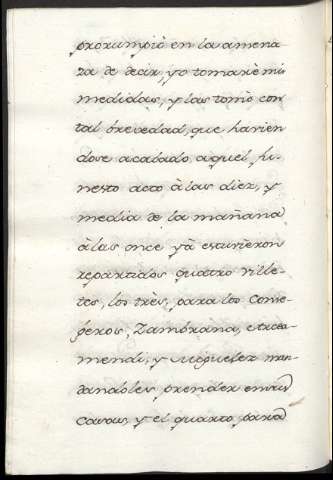 prorumpió en la amena-
za de decir, yo tomarè mis
medidas, y las tomò con
tal brevedad, que havien
dose acabado aquel fu-
nesto acto à las diez, y
media de la mañana
à las once yà estuvieron
repartidos quattro ville-
tes, los très para los Conse-
geros, Zambrana,
mendi, y Moguelez man-
dandoles prender en sus
casas, y el quarto para